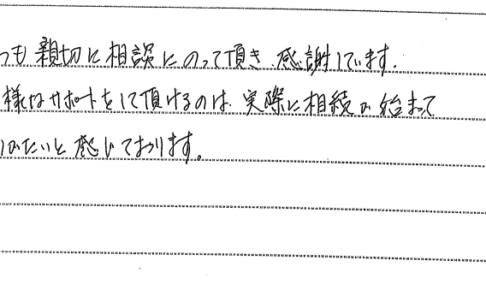 つも親切に相談にのって頂き、感謝しています。
様なサポートをして頂けるのは、実際に相続が始まって
りがたいと感じております。